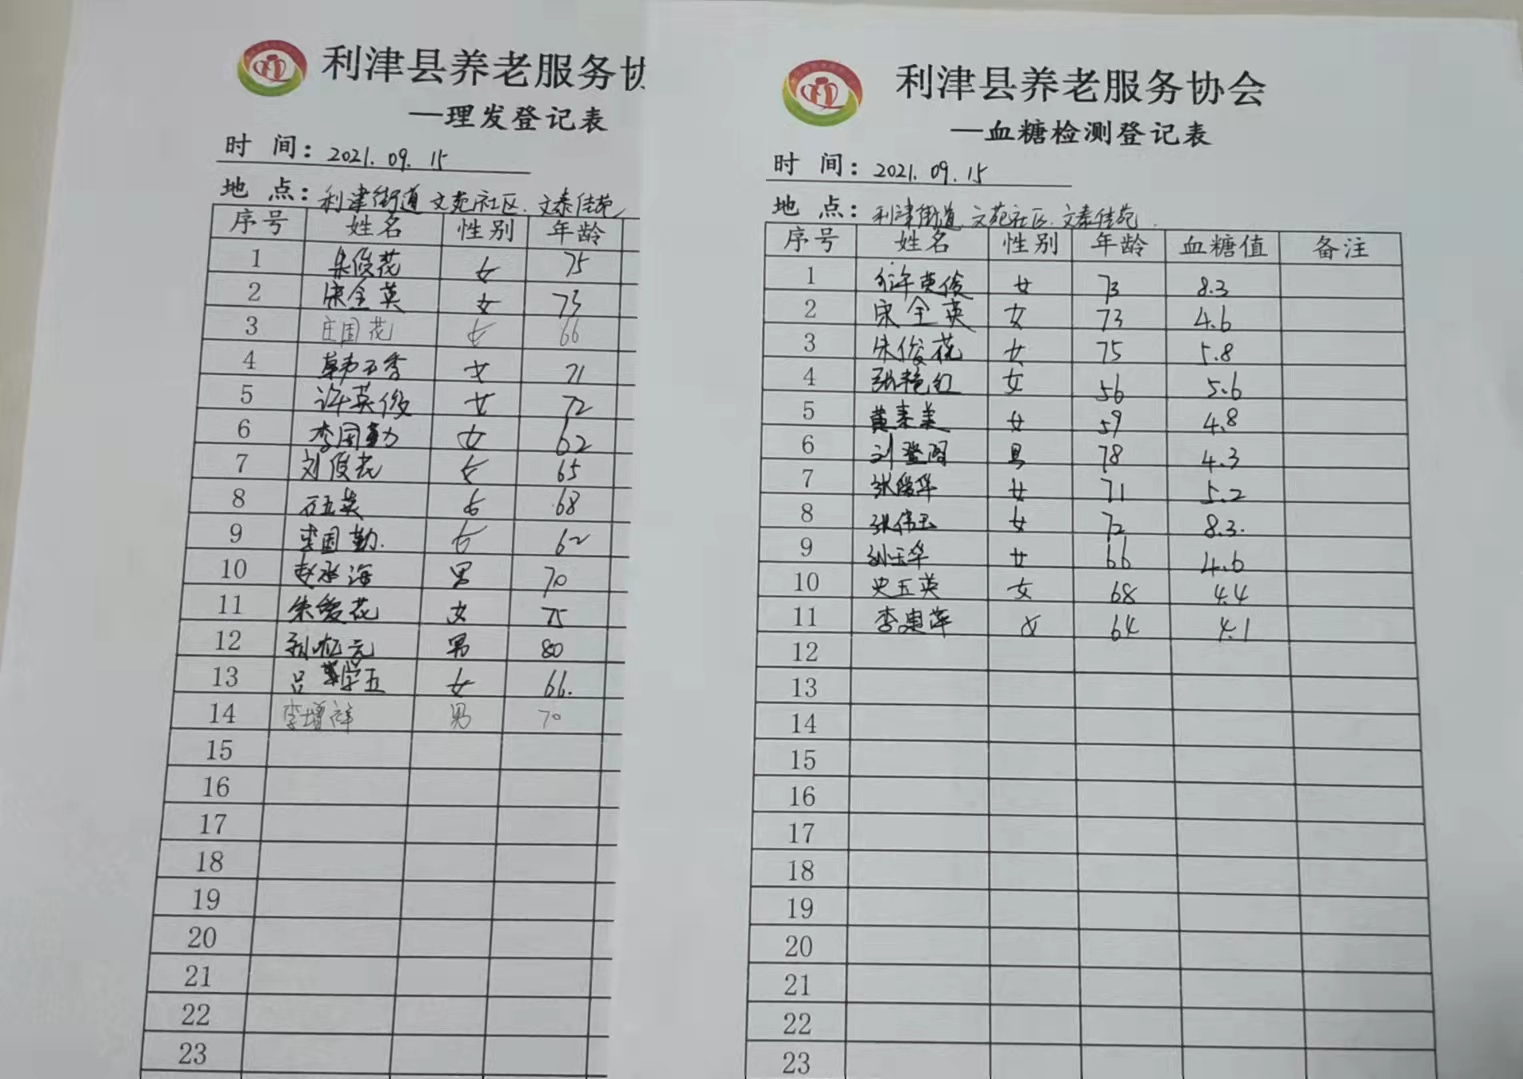 利津县养老服务协
—理发登记表
时 间：2021.09.15
地 点：利津街道 文苑社区.文泰佳苑
序号 姓名 性别 年龄
1 朱俊花 女 75
2 宋全英 女 73
3 庄国花 女 66
4 韩玉秀 女 71
5 许英俊 女 72
6 李国勤 女 62
7 刘俊花 女 65
8 女 68
9 李国勤. 女 62
10 赵 海 男 70
11 朱爱花 女 75
12 元 男 80
13 吕 玉 女 66.
14 李增祥 男 70
15
16
17
18
19
20
21
22
23
利津县养老服务协会
—血糖检测登记表
时 间：2021.09.15
地 点：利津街道 文苑社区.文泰佳苑.
序号 姓名 性别 年龄 血糖值 备注
1 许英俊 女 73 8.3
2 宋全英 女 73 4.6
3 朱俊花 女 75 5.8
4 张艳红 女 56 5.6
5 黄 美 女 59 4.8
6 刘登阁 男 78 4.3
7 张俊华 女 71 5.2
8 张伟玉 女 72 8.3.
9 玉华 女 66 4.6
10 史五英 女 68 4.4
11 李惠萍 女 64 4.1
12
13
14
15
16
17
18
19
20
21
22
23